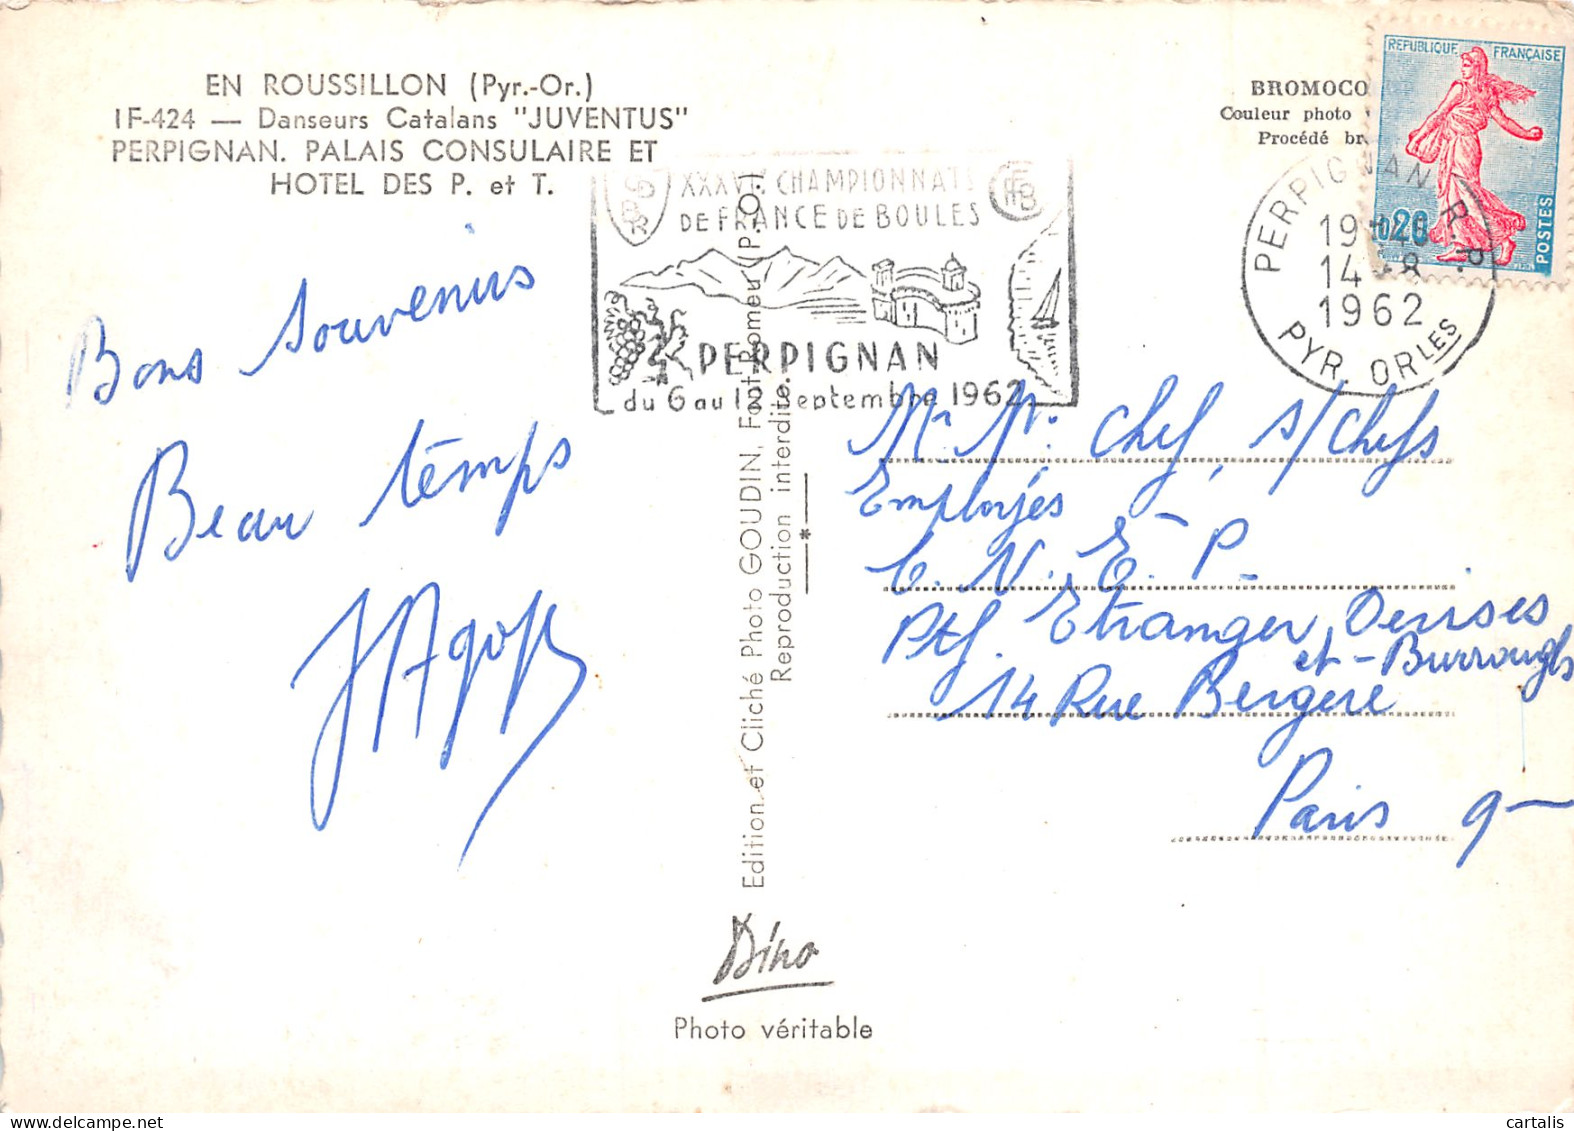 EN ROUSSILLON (Pyr.-Or.)
IF-424 — Danseurs Catalans "JUVENTUS"
PERPIGNAN. PALAIS CONSULAIRE ET
HOTEL DES P. et T.
Bons souvenirs
Beau temps
XXXVIe CHAMPIONNATS
DE FRANCE DE BOULES
PERPIGNAN
du 6 au 12 Septembre 1962
Edition et Cliché Photo GOUDIN, Font-Romeu (P.-O.)
Reproduction interdite.
Dino
Photo véritable
BROMOCO
Couleur photo
Procédé br
REPUBLIQUE FRANÇAISE
0,20
POSTES
PERPIGNAN R.P.
19H
14 - 8
1962
PYR. ORLES
Mr Mr: Chef, s/Chefs
Employés
C. N. E. P.
Ptf. Etranger Devises
et - Burroughs
14 Rue Bergere
Paris 9
cartalis
www.delcampe.net